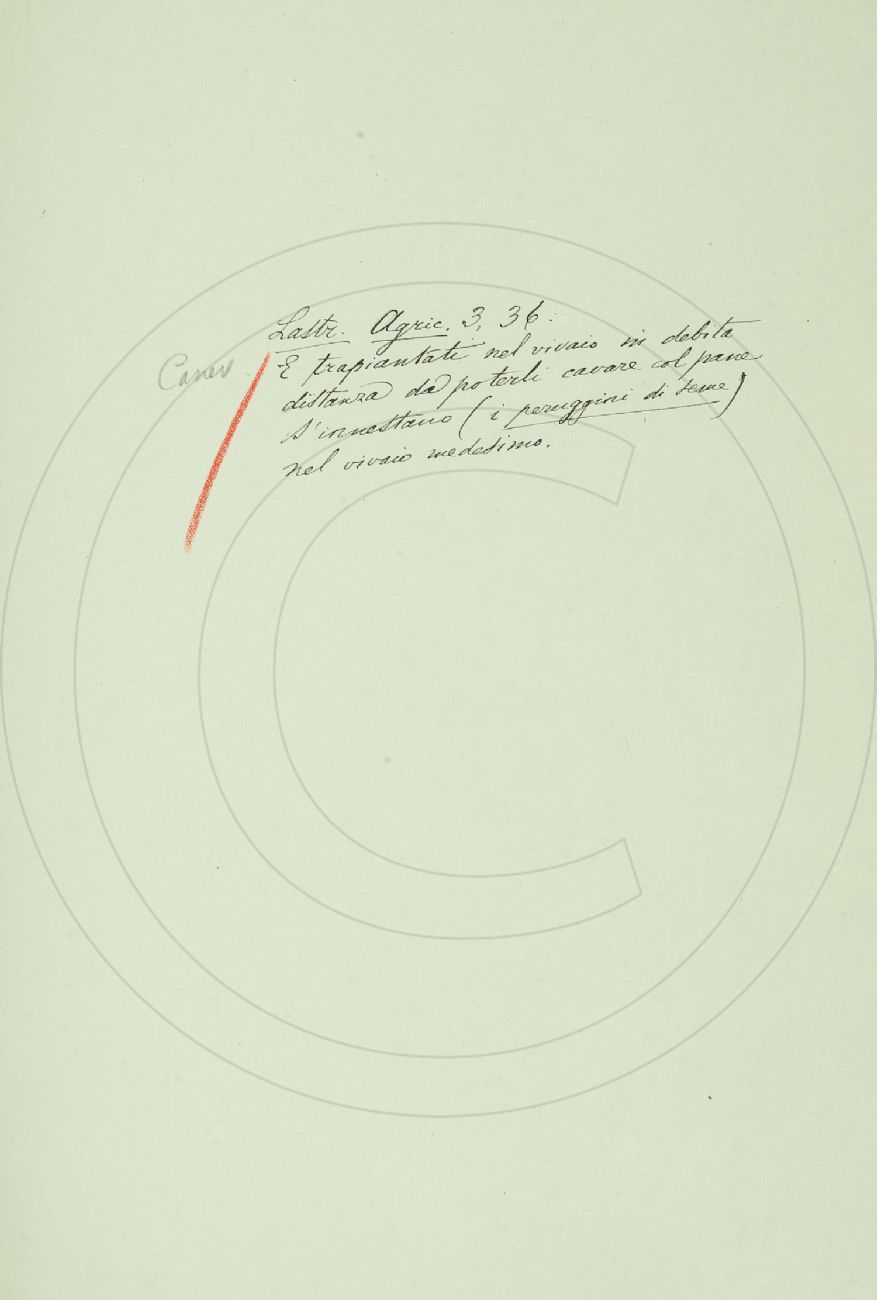 Lastr. Agric. 3, 36:
E trapiantati nel vivaio in debita
distanza da poterli cavare col pane
s'innestano (i peruggini di seme)
nel vivaio medesimo.